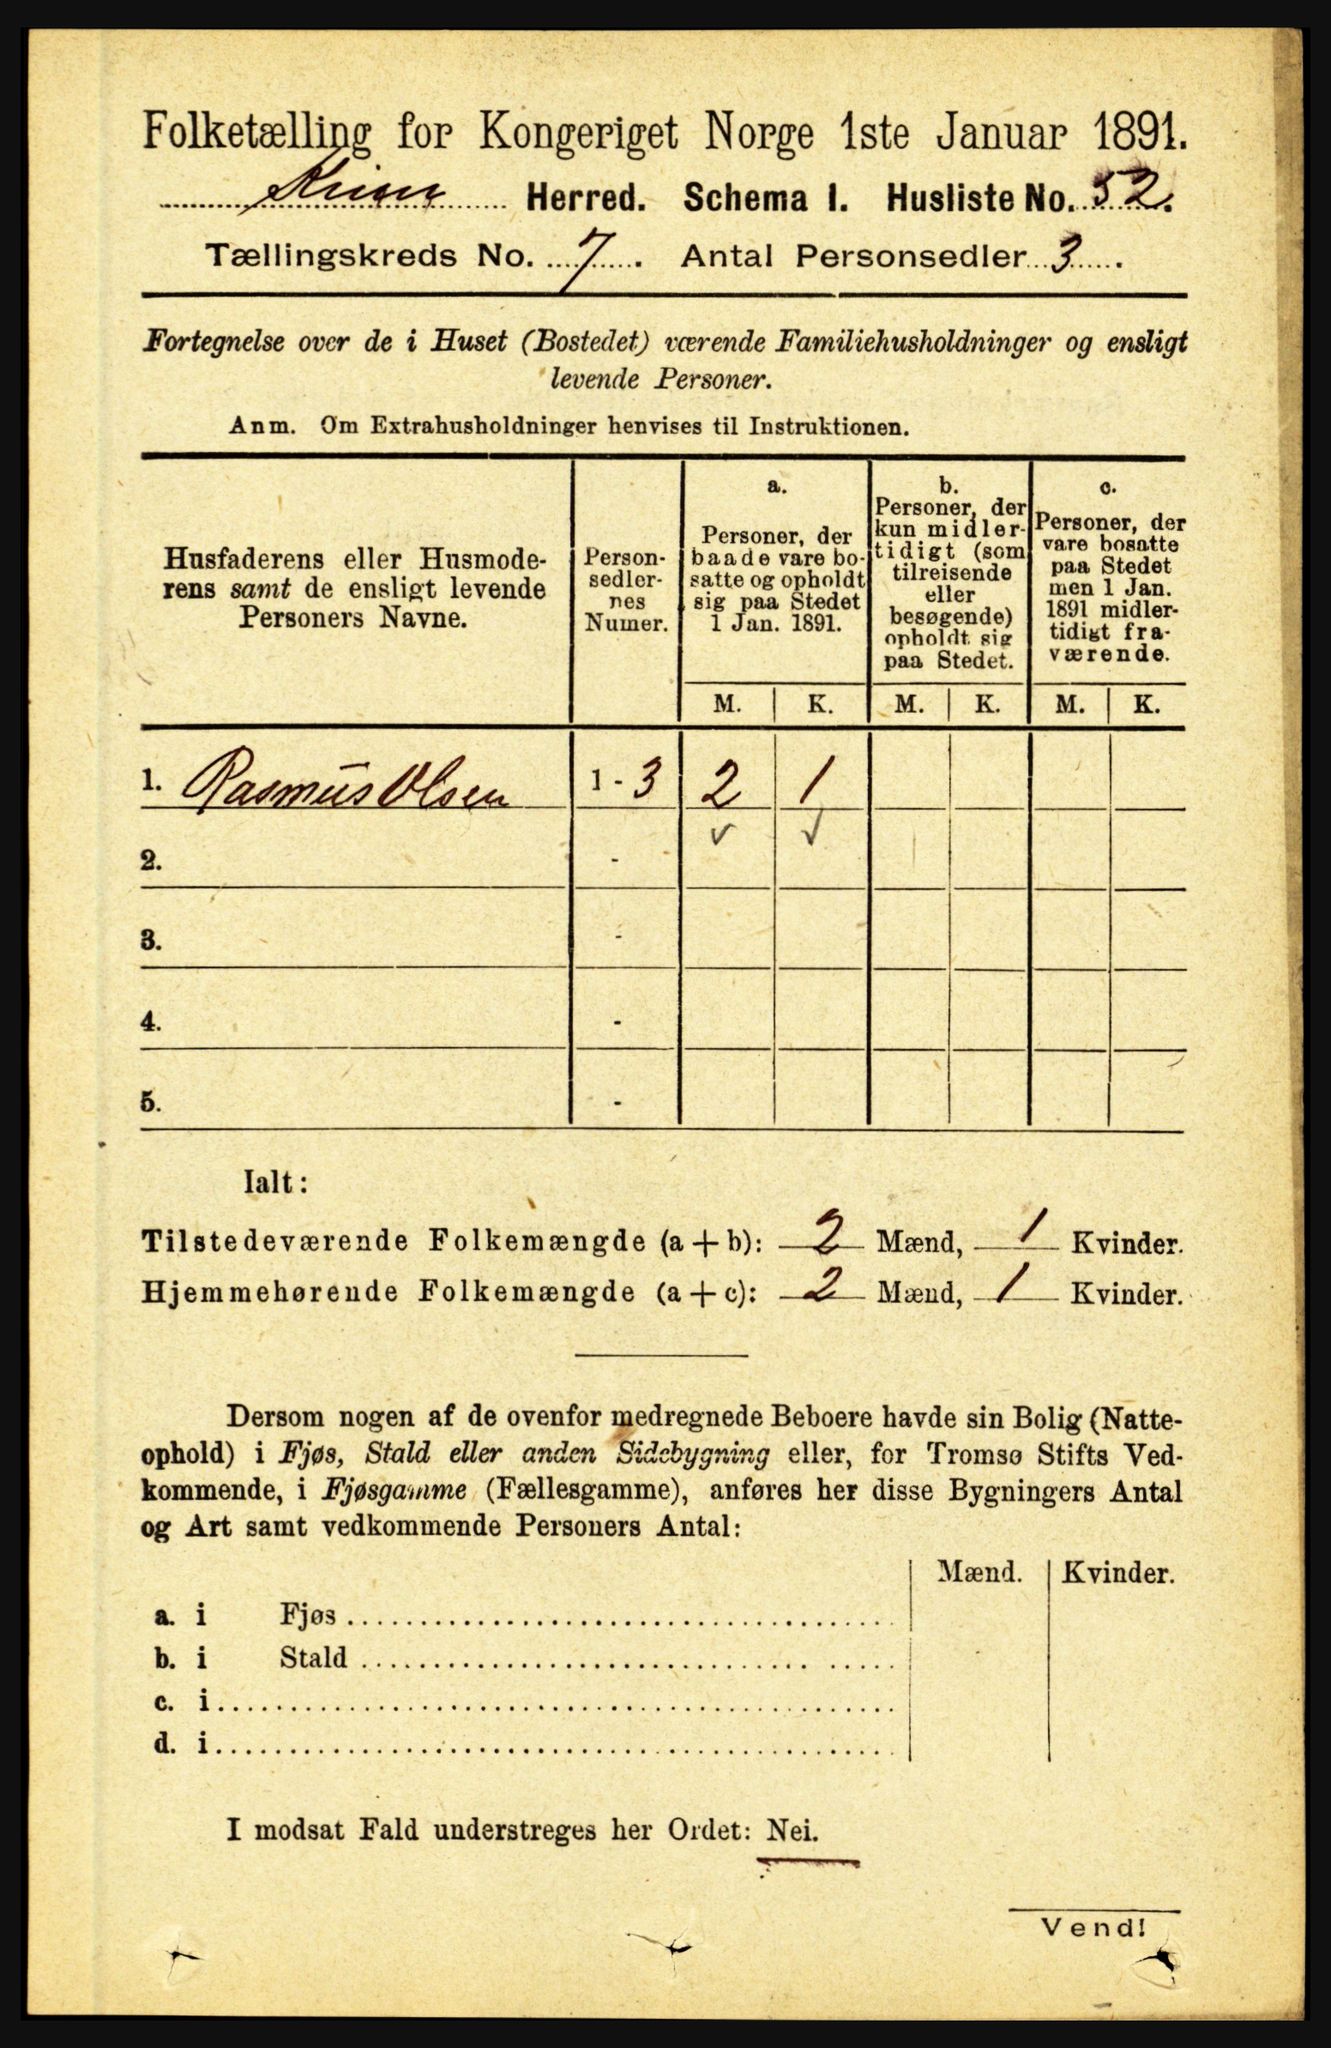 Folketælling for Kongeriget Norge 1ste Januar 1891.
Kinn Herred. Schema I. Husliste No. 52.
Tællingskreds No. 7. Antal Personsedler 3.
Fortegnelse over de i Huset (Bostedet) værende Familiehusholdninger og ensligt
levende Personer.
Anm. Om Extrahusholdninger henvises til Instruktionen.
Husfaderens eller Husmode-
rens samt de ensligt levende
Personers Navne.
Person-
sedler-
nes
Numer.
a.
Personer, der
baade vare bo-
satte og opholdt
sig paa Stedet
1 Jan. 1891.
b.
Personer, der
kun midler-
tidigt (som
tilreisende
eller
besøgende)
opholdt sig
paa Stedet.
c.
Personer, der
vare bosatte
paa Stedet
men 1 Jan.
1891 midler-
tidigt fra-
værende.
M. K. M. K. M. K.
1. Rasmus Olsen 1 - 3 2 1
2. -
3. -
4. -
5. -
Ialt:
Tilstedeværende Folkemængde (a + b): 2 Mænd, 1 Kvinder.
Hjemmehørende Folkemængde (a + c): 2 Mænd, 1 Kvinder.
Dersom nogen af de ovenfor medregnede Beboere havde sin Bolig (Natte-
ophold) i Fjøs, Stald eller anden Sidebygning eller, for Tromsø Stifts Ved-
kommende, i Fjøsgamme (Fællesgamme), anføres her disse Bygningers Antal
og Art samt vedkommende Personers Antal:
Mænd. Kvinder.
a. i Fjøs
b. i Stald
c. i
d. i
I modsat Fald understreges her Ordet: Nei.
Vend!